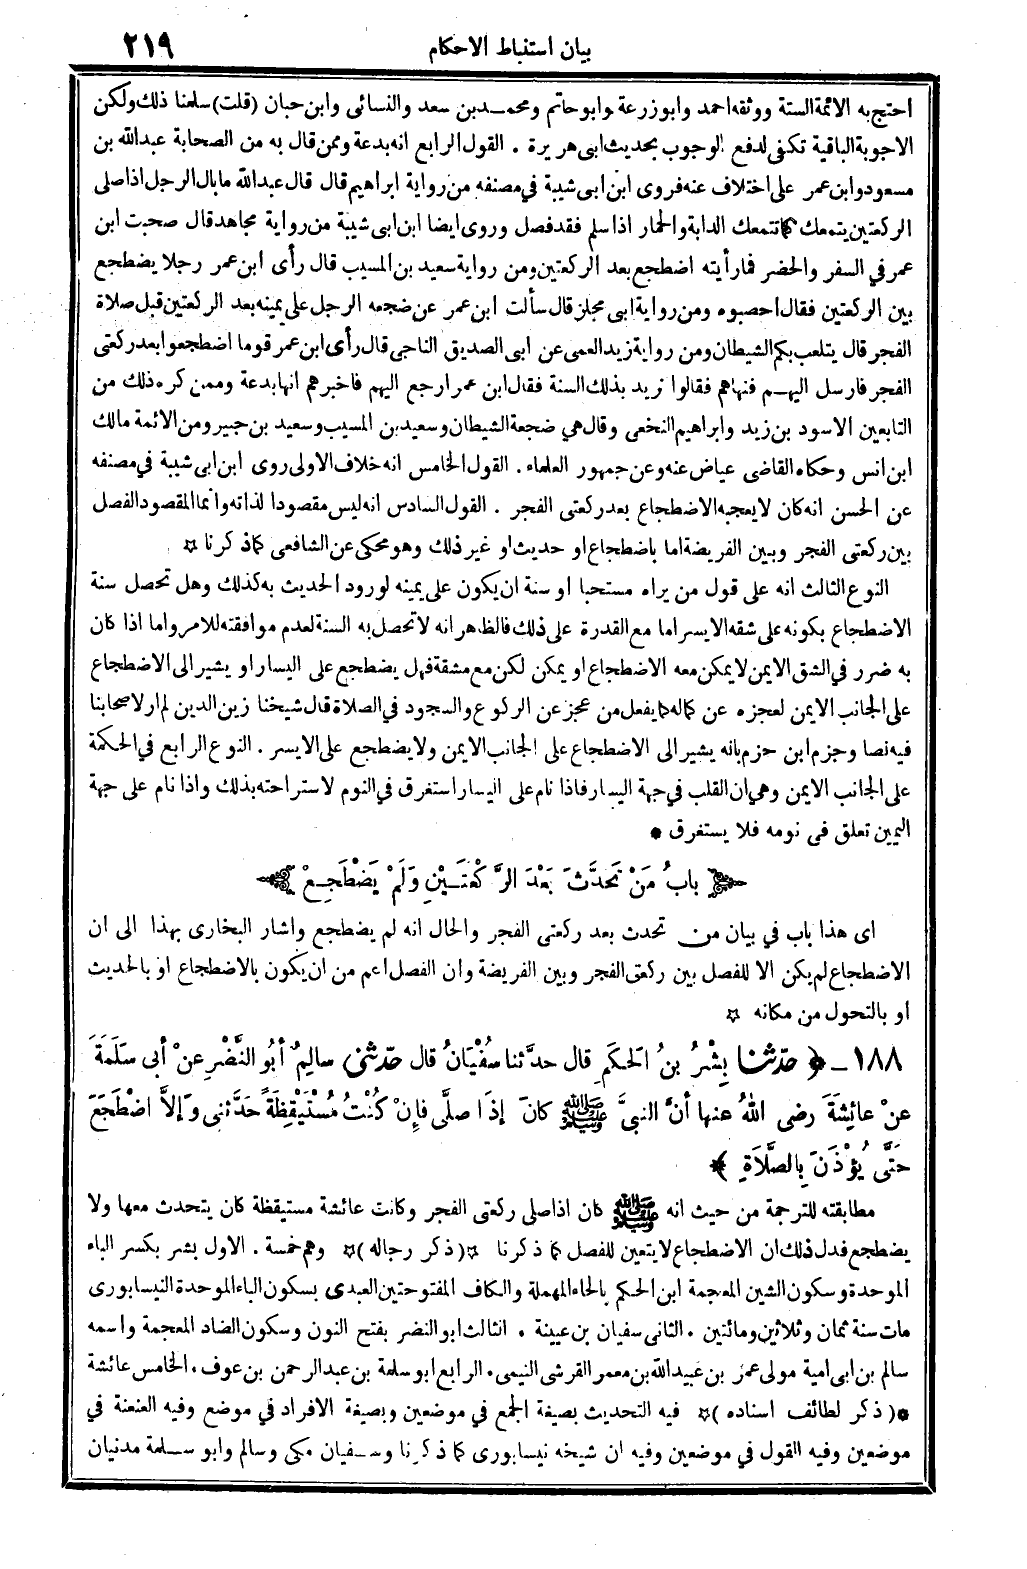 بيان استنباط الاحكام ٢١٩
احتج به الائمة الستة ووثقه احمد وابو زرعة وابو حاتم ومحمد بن سعد والنسائى وابن حبان (قلت) سلمنا ذلك ولكن
الاجوبة الباقية تكفى لدفع الوجوب بحديث ابى هريرة . القول الرابع انه بدعة وممن قال به من الصحابة عبد الله بن
مسعود وابن عمر على اختلاف عنه فروى ابن ابى شيبة في مصنفه من رواية ابراهيم قال قال عبد الله ما بال الرجل اذا صلى
الركعتين يتمعك كما تتمعك الدابة والحمار اذا سلم فقد فصل وروى ايضا ابن ابى شيبة من رواية مجاهد قال صحبت ابن
عمر في السفر والحضر فما رأيته اضطجع بعد الركعتين ومن رواية سعيد بن المسيب قال رأى ابن عمر رجلا يضطجع
بين الركعتين فقال احصبوه ومن رواية ابى مجلز قال سألت ابن عمر عن ضجعة الرجل على يمينه بعد الركعتين قبل صلاة
الفجر قال يتلعب بكم الشيطان ومن رواية زيد العمى عن ابى الصديق الناجى قال رأى ابن عمر قوما اضطجعوا بعد ركعتى
الفجر فارسل اليهم فنهاهم فقالوا نريد بذلك السنة فقال ابن عمر ارجع اليهم فاخبرهم انها بدعة وممن كره ذلك من
التابعين الاسود بن زيد وابراهيم النخعى وقال هي ضجعة الشيطان وسعيد بن المسيب وسعيد بن جبير ومن الائمة مالك
ابن انس وحكاه القاضى عياض عنه وعن جمهور العلماء . القول الخامس انه خلاف الاولى روى ابن ابى شيبة في مصنفه
عن الحسن انه كان لا يعجبه الاضطجاع بعد ركعتى الفجر . القول السادس انه ليس مقصودا لذاته وانما المقصود الفصل
بين ركعتى الفجر وبين الفريضة اما باضطجاع او حديث او غير ذلك وهو محكى عن الشافعى كما ذكرنا ☆
النوع الثالث انه على قول من يراه مستحبا او سنة ان يكون على يمينه لورود الحديث به كذلك وهل تحصل سنة
الاضطجاع بكونه على شقه الايسر اما مع القدرة على ذلك فالظاهر انه لا تحصل به السنة لعدم موافقته للامر واما اذا كان
به ضرر في الشق الايمن لا يمكن معه الاضطجاع او يمكن لكن مع مشقة فهل يضطجع على اليسار او يشير الى الاضطجاع
على الجانب الايمن لعجزه عن كماله كما يفعل من عجز عن الركوع والسجود في الصلاة قال شيخنا زين الدين لم ار لاصحابنا
فيه نصا وجزم ابن حزم بانه يشير الى الاضطجاع على الجانب الايمن ولا يضطجع على الايسر . النوع الرابع في الحكمة
على الجانب الايمن وهي ان القلب في جهة اليسار فاذا نام على اليسار استغرق في النوم لاستراحته بذلك واذا نام على جهة
اليمين تعلق فى نومه فلا يستغرق *
﴿ بابُ مَنْ تَحَدَّثَ بَعْدَ الرَّكْعَتَيْنِ وَلَمْ يَضْطَجِعْ ﴾
اى هذا باب في بيان من تحدث بعد ركعتى الفجر والحال انه لم يضطجع واشار البخارى بهذا الى ان
الاضطجاع لم يكن الا للفصل بين ركعتى الفجر وبين الفريضة وان الفصل اعم من ان يكون بالاضطجاع او بالحديث
او بالتحول من مكانه ☆
١٨٨ - ﴿ حدّثنا بِشْرُ بنُ الحَكَمِ قال حدّثنا سُفْيَانُ قال حدّثنى سالِمٌ أبُو النَّضْرِ عنْ أبى سَلَمَةَ
عنْ عائِشَةَ رضى اللهُ عنها أنَّ النبىَّ ﷺ كانَ إذَا صلَّى فإنْ كُنْتُ مُسْتَيْقِظَةً حَدَّثنى وَإلاَّ اضْطَجَعَ
حَتَّى يُؤْذَنَ بِالصَّلَاةِ ﴾
مطابقته للترجمة من حيث انه ﷺ كان اذا صلى ركعتى الفجر وكانت عائشة مستيقظة كان يتحدث معها ولا
يضطجع فدل ذلك ان الاضطجاع لا يتعين للفصل كما ذكرنا ☆ ( ذكر رجاله ) ☆ وهم خمسة . الاول بشر بكسر الباء
الموحدة وسكون الشين المعجمة ابن الحكم بالحاء المهملة والكاف المفتوحتين العبدى بسكون الباء الموحدة النيسابورى
مات سنة ثمان وثلاثين ومائتين . الثانى سفيان بن عيينة . الثالث ابو النضر بفتح النون وسكون الضاد المعجمة واسمه
سالم بن ابى امية مولى عمر بن عبيد الله بن معمر القرشى التيمى . الرابع ابو سلمة بن عبد الرحمن بن عوف . الخامس عائشة
* ( ذكر لطائف اسناده ) ☆ فيه التحديث بصيغة الجمع في موضعين وبصيغة الافراد في موضع وفيه العنعنة في
موضعين وفيه القول في موضعين وفيه ان شيخه نيسابورى كما ذكرنا وسفيان مكى وسالم وابو سلمة مدنيان